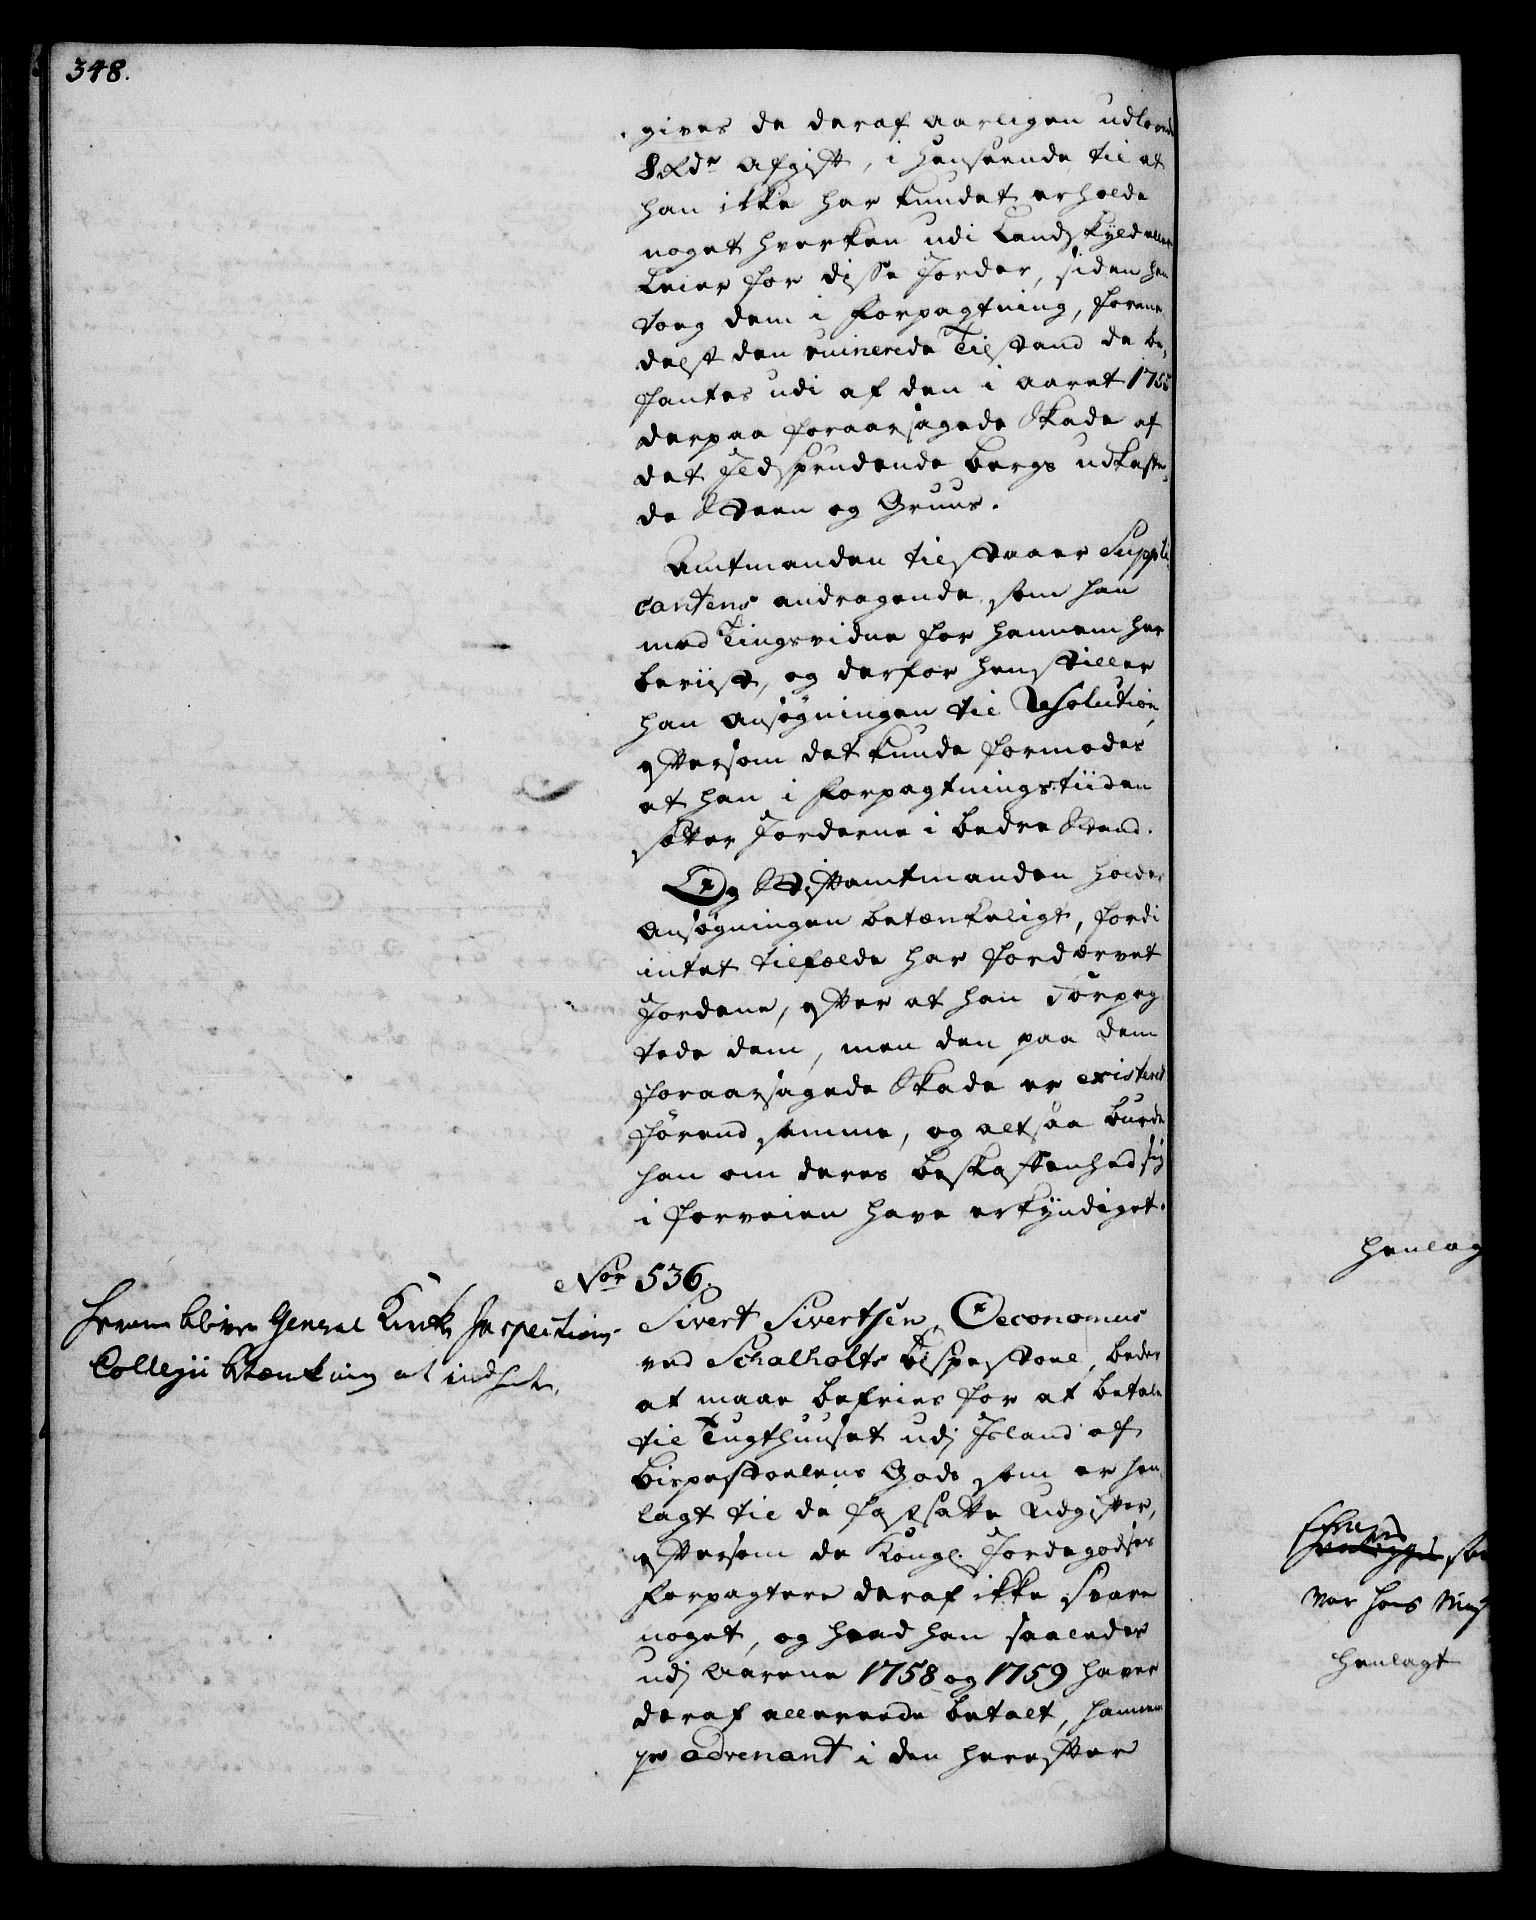 348.
gives de deraf aarligen udlovede
8 Rdr Afgift, i henseende til at
han ikke har kundet erholde
noget hverken udi Landskyld eller
Leier for disse Jorder, siden han
toeg dem i Forpagtning, forme-
delst den ruinerede Tilstand de be-
fantes udi af den i Aaret 1755
derpaa foraarsagede Skade af
det Jldsprudende Bergs udkaste-
de Steen og Gruus.
Amtmanden tilstaaer Suppli
cantens andragende, som han
med Tingsvidne for hannem har
beviist, og derfor henstiller
han Ansøgningen til Resolution,
eftersom det kunde formodes
at han i Forpagtningstiiden
sætter Jorderne i bedre Stand.
Og Stiftamtmanden holder
Ansøgningen betænkeligt, fordi
intet tilfælde har fordærvet
Jordene, efter at han Forpag
tede dem, men den paa dem
foraarsagede Skade er existeret
førend samme, og altsaa burde
han om deres beskaffenhed sig
i forveien have erkyndiget.
Nor 536.
Sivert Sivertsen, Oeconomus
ved Schalholts Bispestoel, beder
at maae befries for at betale
til Tugthuuset udj Jsland af
Bispestoelens Gods, som er hen
lagt til de fastsatte Udgifter,
eftersom de Kongl. Jordegodses
Forpagtere deraf ikke svare
noget, og hvad han saaledes
udj Aarene 1758 og 1759 haver
deraf allereede betalt, hannem
pr advenant i den herefter
Herom bliver General Kirke Inspections-
Collegii Betænkning at indhente.
henlag
var hos
henlagt